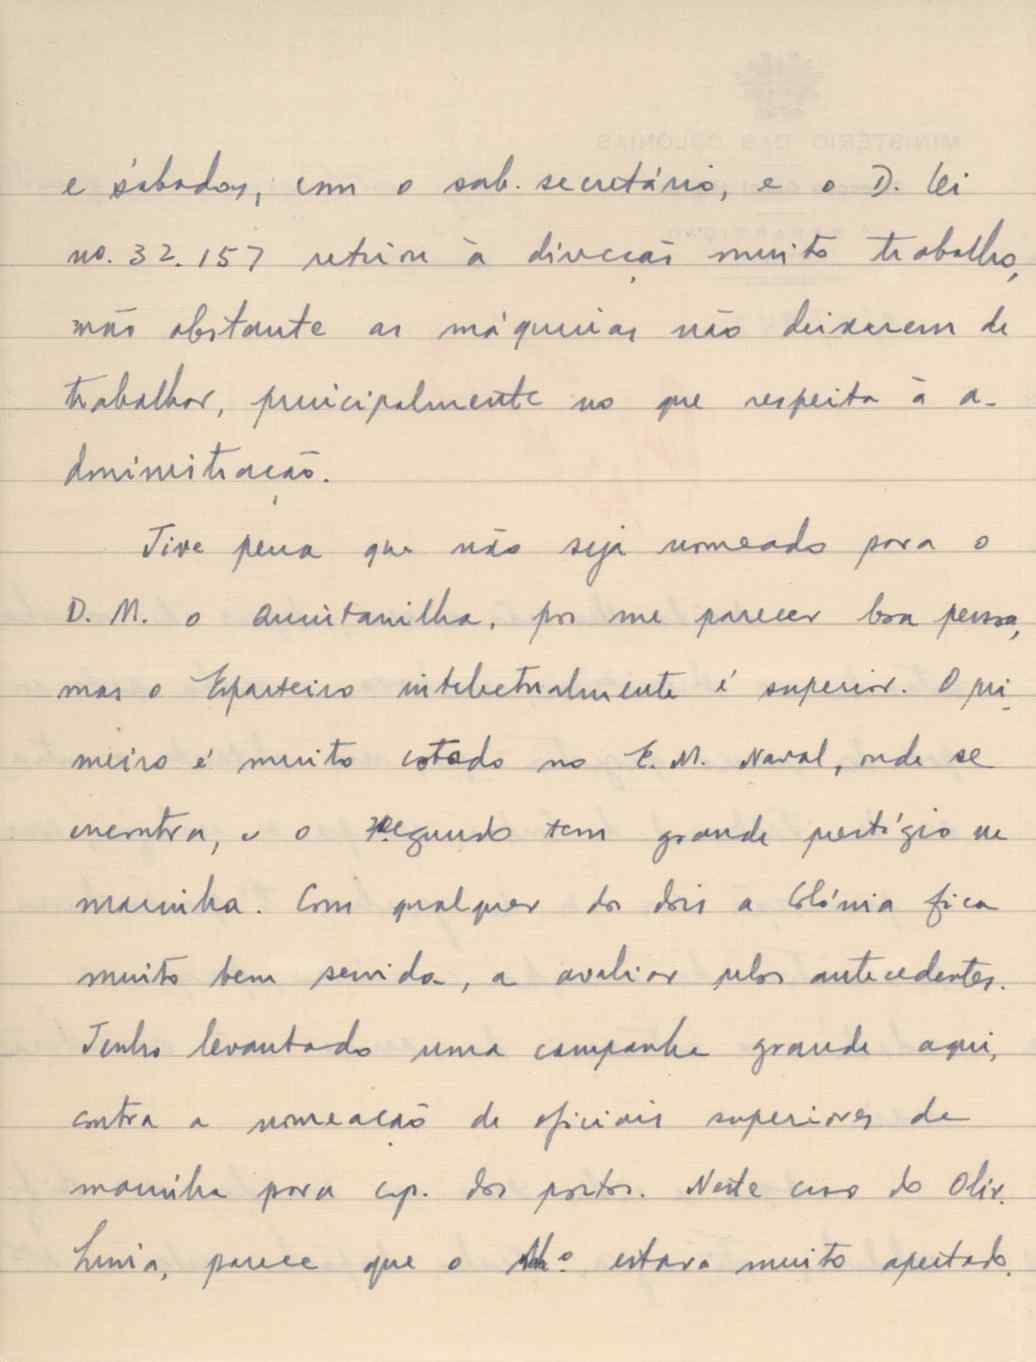 e sábados, com o sub. secretário, e o D. lei
no. 32.157 retirou à direcção muito trabalho,
não obstante as máquinas não deixarem de
trabalhar, principalmente no que respeita à a-
dministração.
Tive pena que não seja nomeado para o
D. M. o Quintanilha, por me parecer boa pessoa,
mas o Esparteiro intelectualmente é superior. O pri-
meiro é muito cotado no E. M. Naval, onde se
encontra, e o segundo tem grande prestígio na
marinha. Com qualquer dos dois a Colónia fica
muito bem servida, a avaliar pelos antecedentes.
Tenho levantado uma campanha grande aqui,
contra a nomeação de oficiais superiores da
marinha para cap. dos portos. Neste caso do Oliv.
Lima, parece que o estava muito apertado.
MINISTÉRIO DAS COLÓNIAS